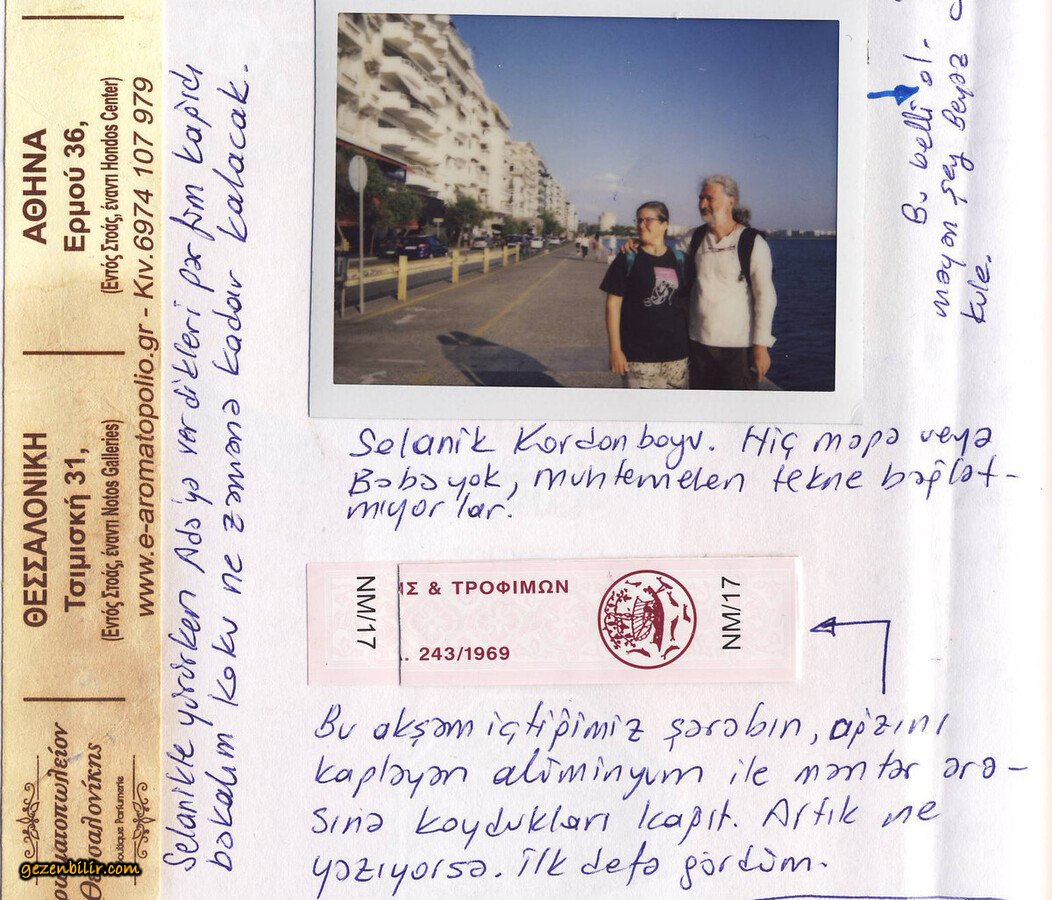 ΑΘΗΝΑ
Ερμού 36,
(Εντός Στοάς, έναντι Hondos Center)
ΘΕΣΣΑΛΟΝΙΚΗ
Τσιμισκή 31,
(Εντός Στοάς, έναντι Notos Galleries)
www.e-aromatopolio.gr - Κιν.6974 107 979
Θεσσαλονίκης
Boutique Parfumerie
gezenbilir.com
Selanikte yürürken Ada'ya verdikleri parfüm kağıdı
bakalım koku ne zamana kadar kalacak.
Bu belli ol-
mayan şey Beyaz
kule.
Selanik Kordonboyu. Hiç mapa veya
Baba yok, muhtemelen tekne bağlat-
mıyorlar.
ΝΜ/17
ΗΣ & ΤΡΟΦΙΜΩΝ
. 243/1969
ΝΜ/17
Bu akşam içtiğimiz şarabın, ağzını
kaplayan alüminyum ile mantar ara-
sına koydukları kağıt. Artık ne
yazıyorsa. İlk defa gördüm.